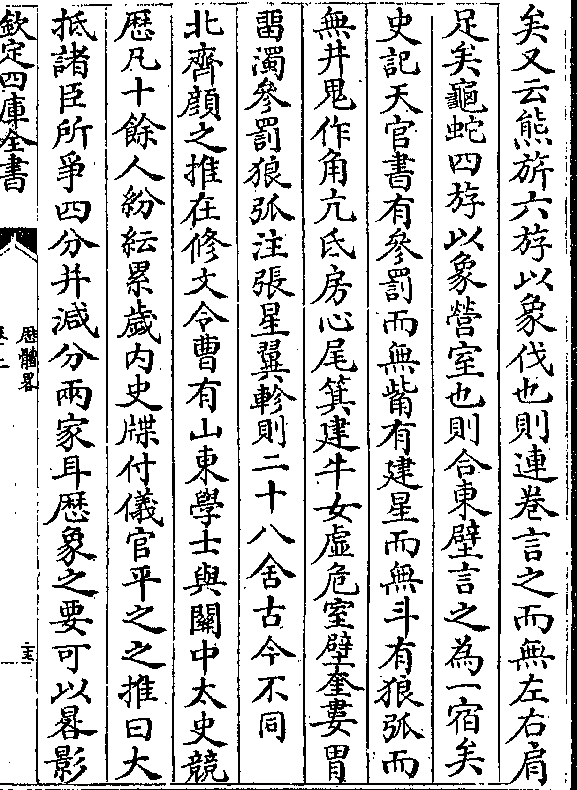 矣又云熊旂六斿以象伐也則連卷言之而無左右肩
足矣龜蛇四斿以象營室也則合東壁言之為一宿矣
史記天官書有參罰而無觜有建星而無斗有狼弧而
無井鬼作角亢氐房心尾箕建牛女虛危室壁奎婁胃
畱濁參罰狼弧注張星翼軫則二十八舍古今不同
北齊顔之推在修文令曹有山東學士與關中太史競
厯凡十餘人紛紜累歲内史牒付儀官平之之推曰大
抵諸臣所爭四分并減分兩家耳厯象之要可以晷影
欽定四庫全書
厯體畧